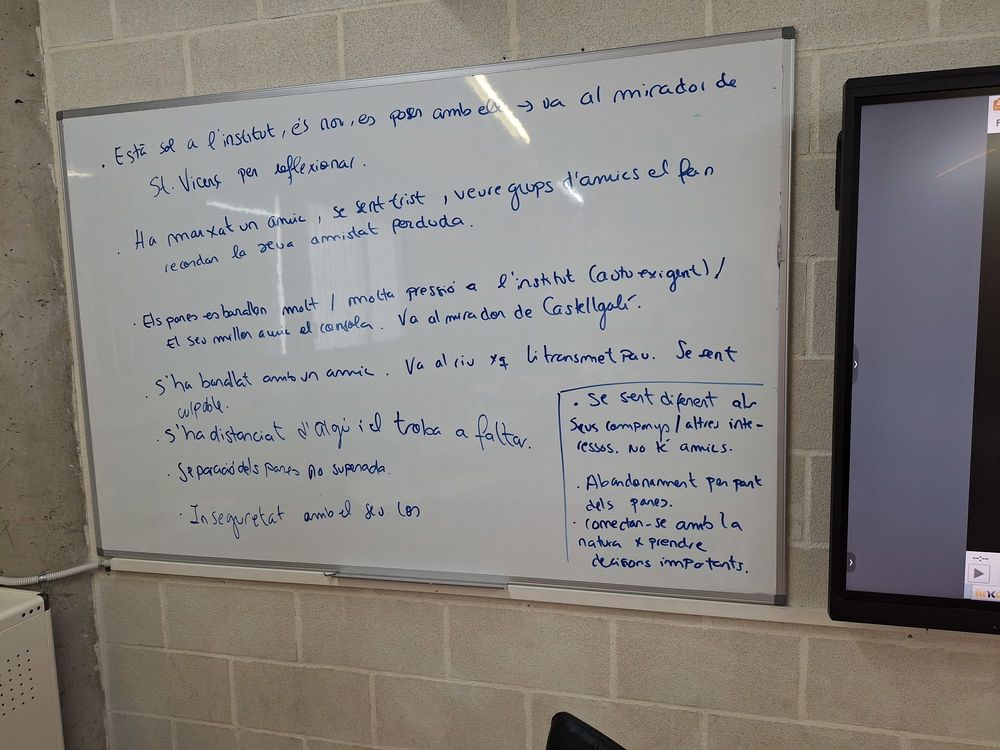 . Està sol a l'institut, és nou, es posen amb ell → va al mirador de
St. Vicenç per reflexionar.
. Ha marxat un amic, se sent trist, veure grups d'amics el fan
recordar la seva amistat perduda.
. Els pares es barallen molt / molta pressió a l'institut (autoexigent) /
El seu millor amic el consola. Va al mirador de Castellgalí.
. S'ha barallat amb un amic. Va al riu xq li transmet pau. Se sent
culpable.
. S'ha distanciat d'algú i el troba a faltar.
. Separació dels pares no superada.
. Inseguretat amb el seu cos
. Se sent diferent als
seus companys / altres inte-
ressos. No té amics.
. Abandonament per part
dels pares.
. Connectar-se amb la
natura x prendre
decisions importants.